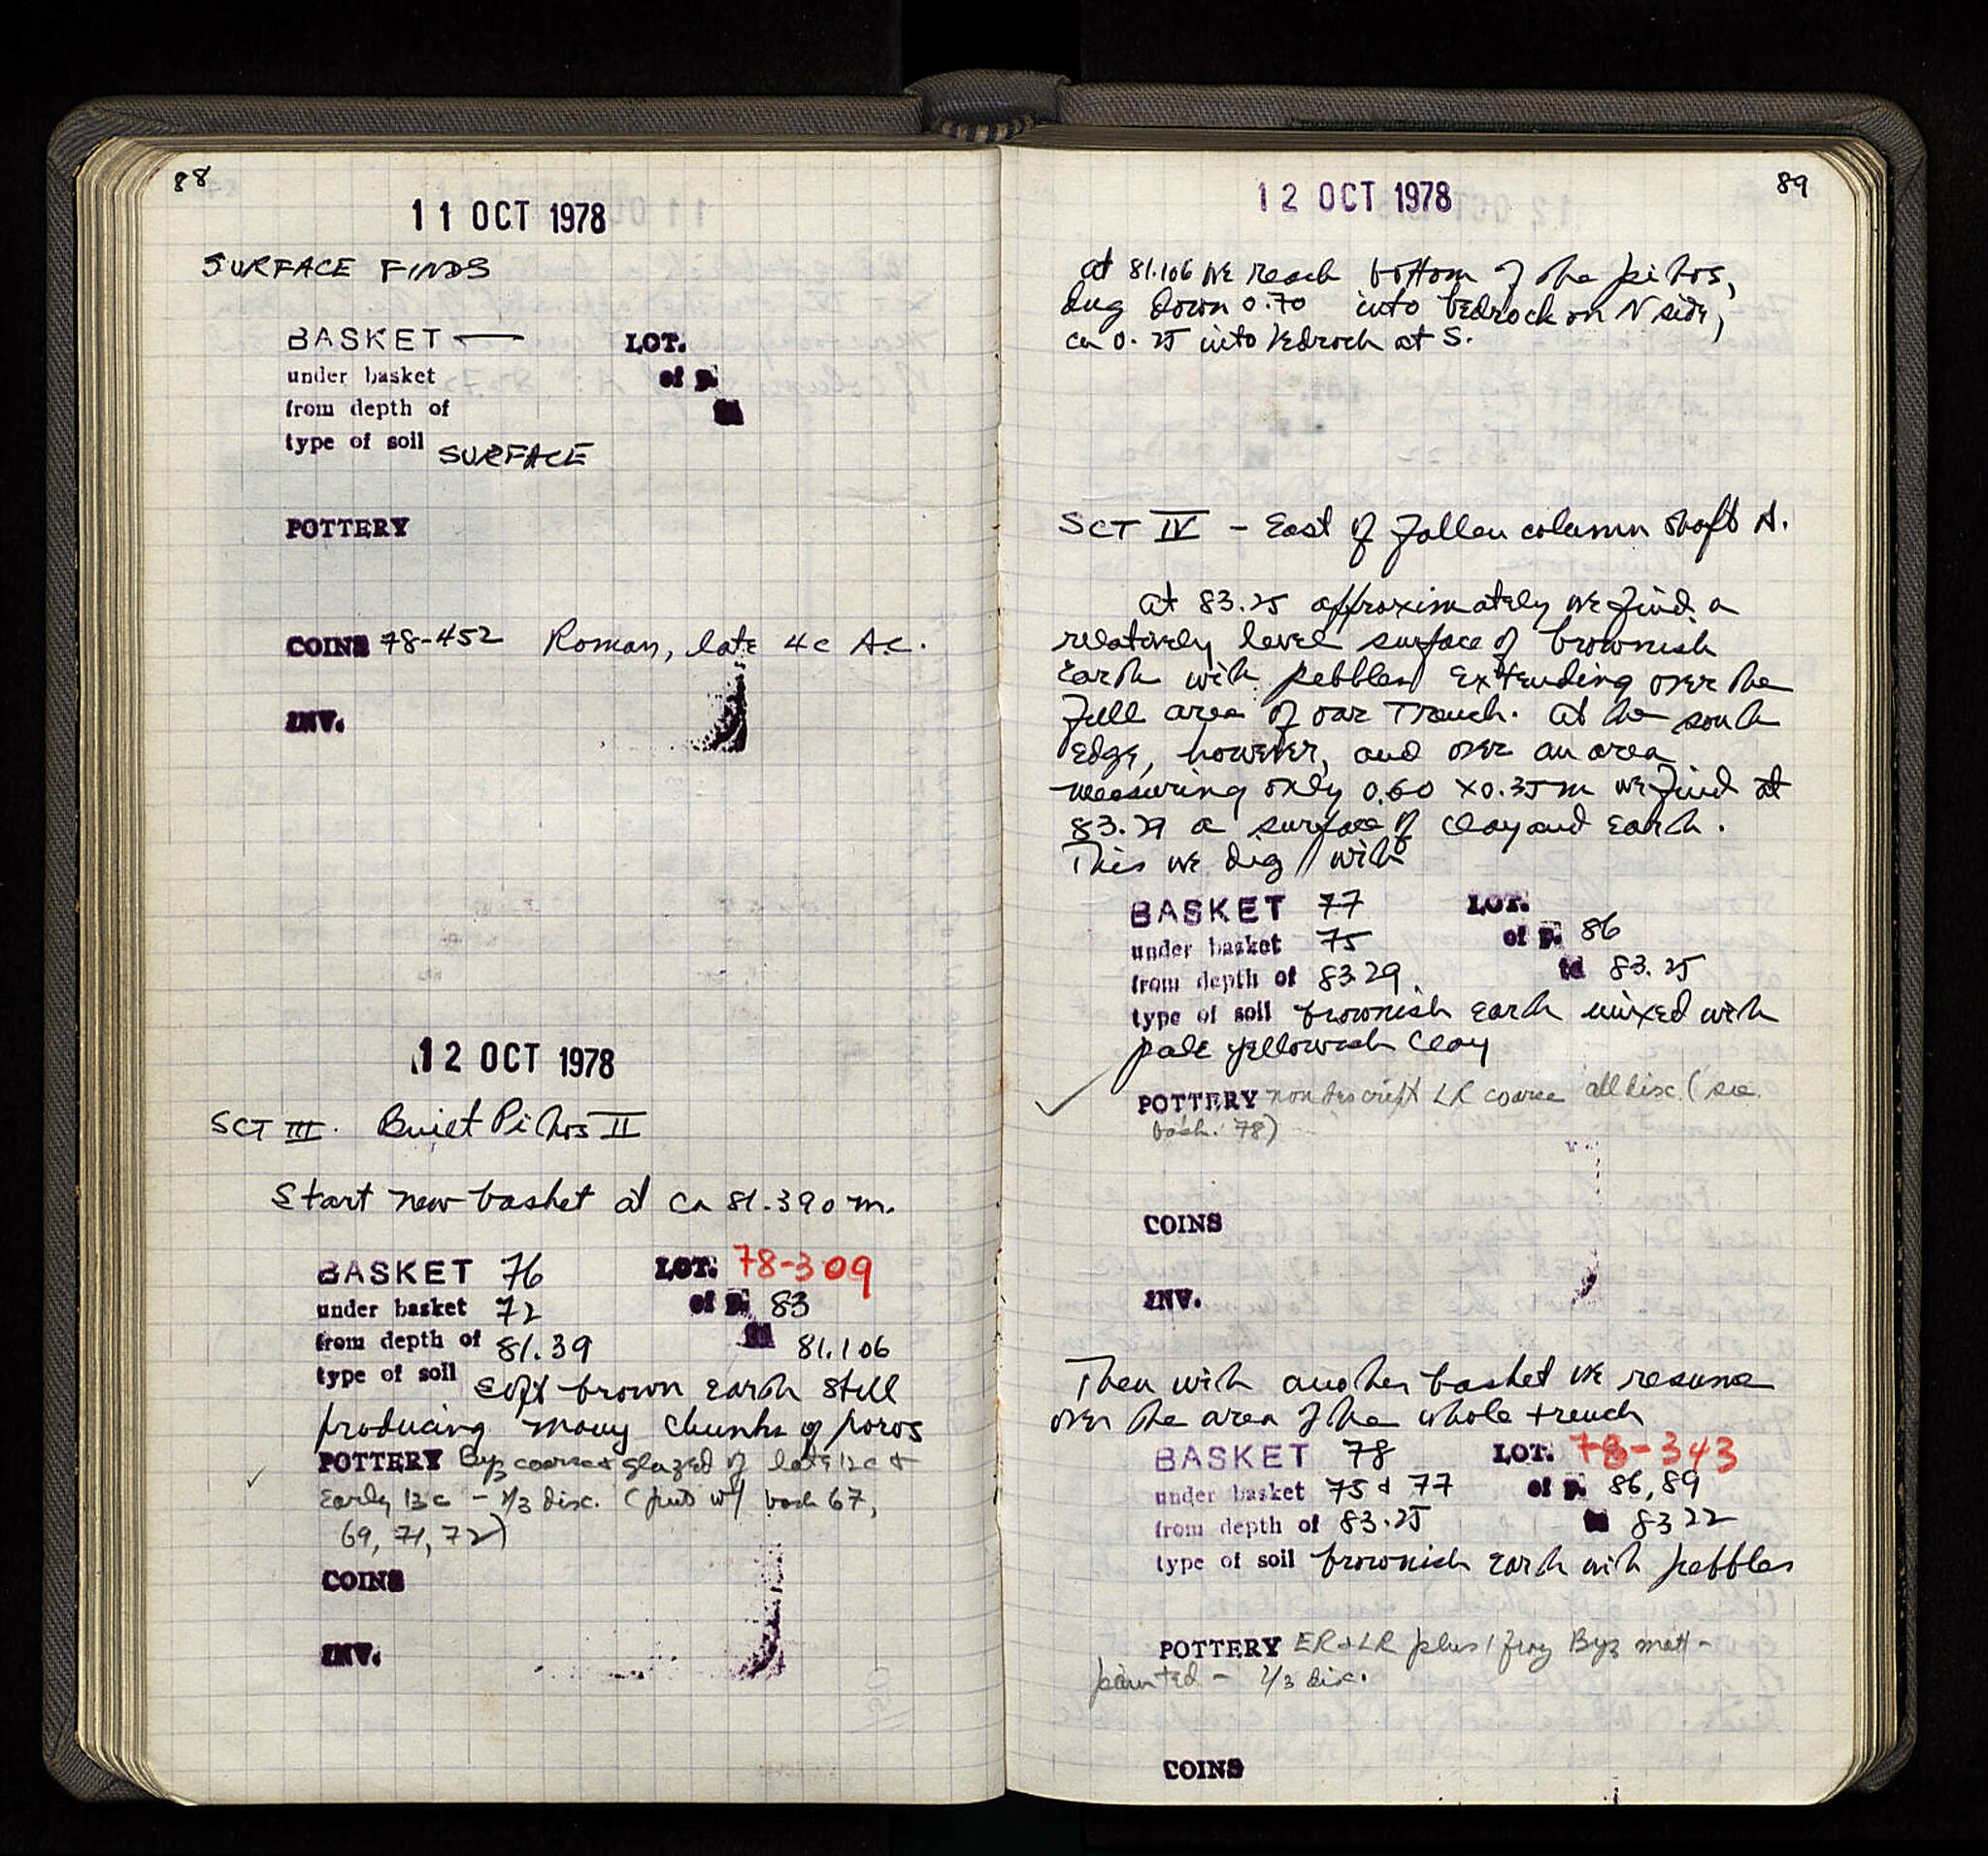 88
11 OCT 1978
SURFACE FINDS
BASKET — LOT.
under basket of p.
from depth of to
type of soil SURFACE
POTTERY
COINS 78-452 Roman, late 4c A.C.
INV.
12 OCT 1978
SCT III. Built Pithos II
Start new basket at ca 81.390 m.
BASKET 76 LOT. 78-309
under basket 72 of p. 83
from depth of 81.39 to 81.106
type of soil soft brown earth still
producing many chunks of poros
POTTERY Byz coarse & glazed of late 12c +
Early 13c - 1/3 disc. (put w/ bask 67,
69, 71, 72)
COINS
INV.
89
12 OCT 1978
at 81.106 we reach bottom of the pithos,
dug down 0.70 into bedrock on N side,
ca 0.25 into bedrock at S.
SCT IV - East of fallen column shaft A.
At 83.25 approximately we find a
relatively level surface of brownish
earth with pebbles extending over the
full area of our trench. At the south
edge, however, and over an area
measuring only 0.60 x 0.35 m we find at
83.29 a surface of clay and earth.
This we dig with
BASKET 77 LOT.
under basket 75 of p. 86
from depth of 83.29 to 83.25
type of soil brownish earth mixed with
pale yellowish clay
POTTERY nondescript LR coarse all disc. (see
bask. 78)
COINS
INV.
Then with another basket we resume
over the area of the whole trench
BASKET 78 LOT. 78-343
under basket 75 & 77 of p. 86, 89
from depth of 83.25 to 83 22
type of soil brownish earth with pebbles
POTTERY ER & LR plus 1 frag Byz matt-
painted - disc.
COINS